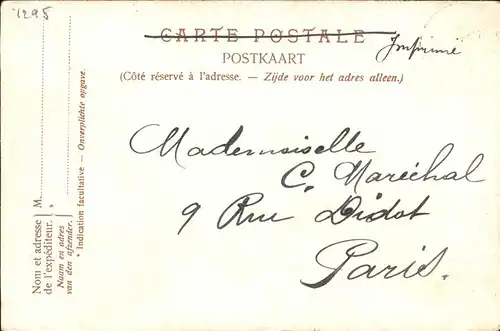 1295
CARTE POSTALE
Imprimé
POSTKAART
(Côté réservé à l'adresse. — Zijde voor het adres alleen.)
Mademoiselle
C. Maréchal
9 Rue Didot
Paris.
Nom et adresse
de l'expéditeur.
Naam en adres
van den afzender.
M.
*
* Indication facultative — Onverplichte opgave.